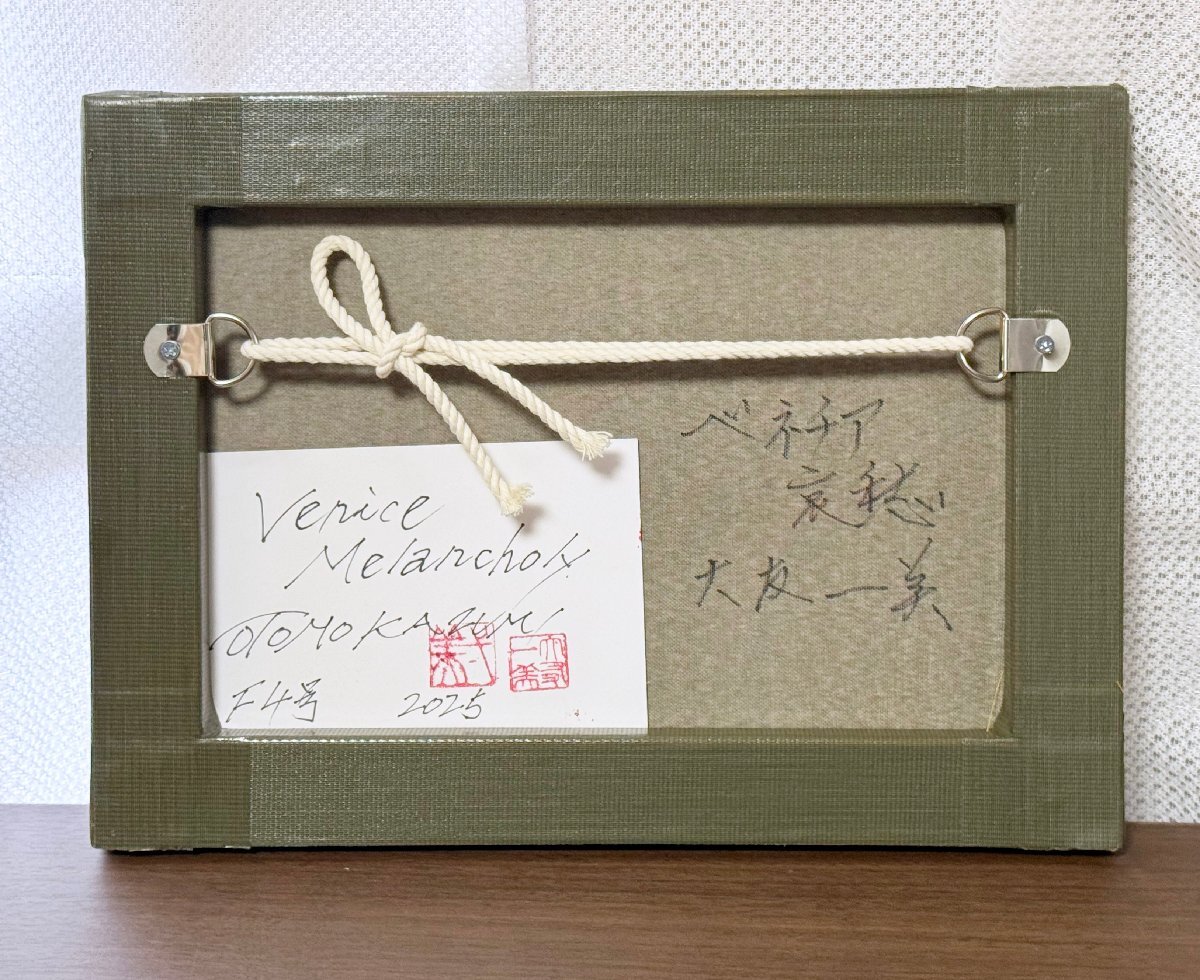 Venice
Melancholy
OTOMO KAZUMI
F4号 2025
ベネチア
哀愁
大友一美